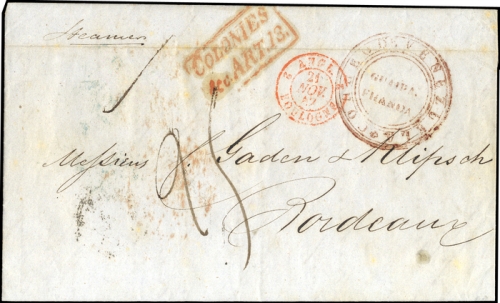 Steamer
COLONIES
&c ART.13.
2 ANGL. 2
21
NOV
47
BOULOGNE
GUAIRA
FRANCA
Messieurs Gaden & Klipsch
Bordeaux